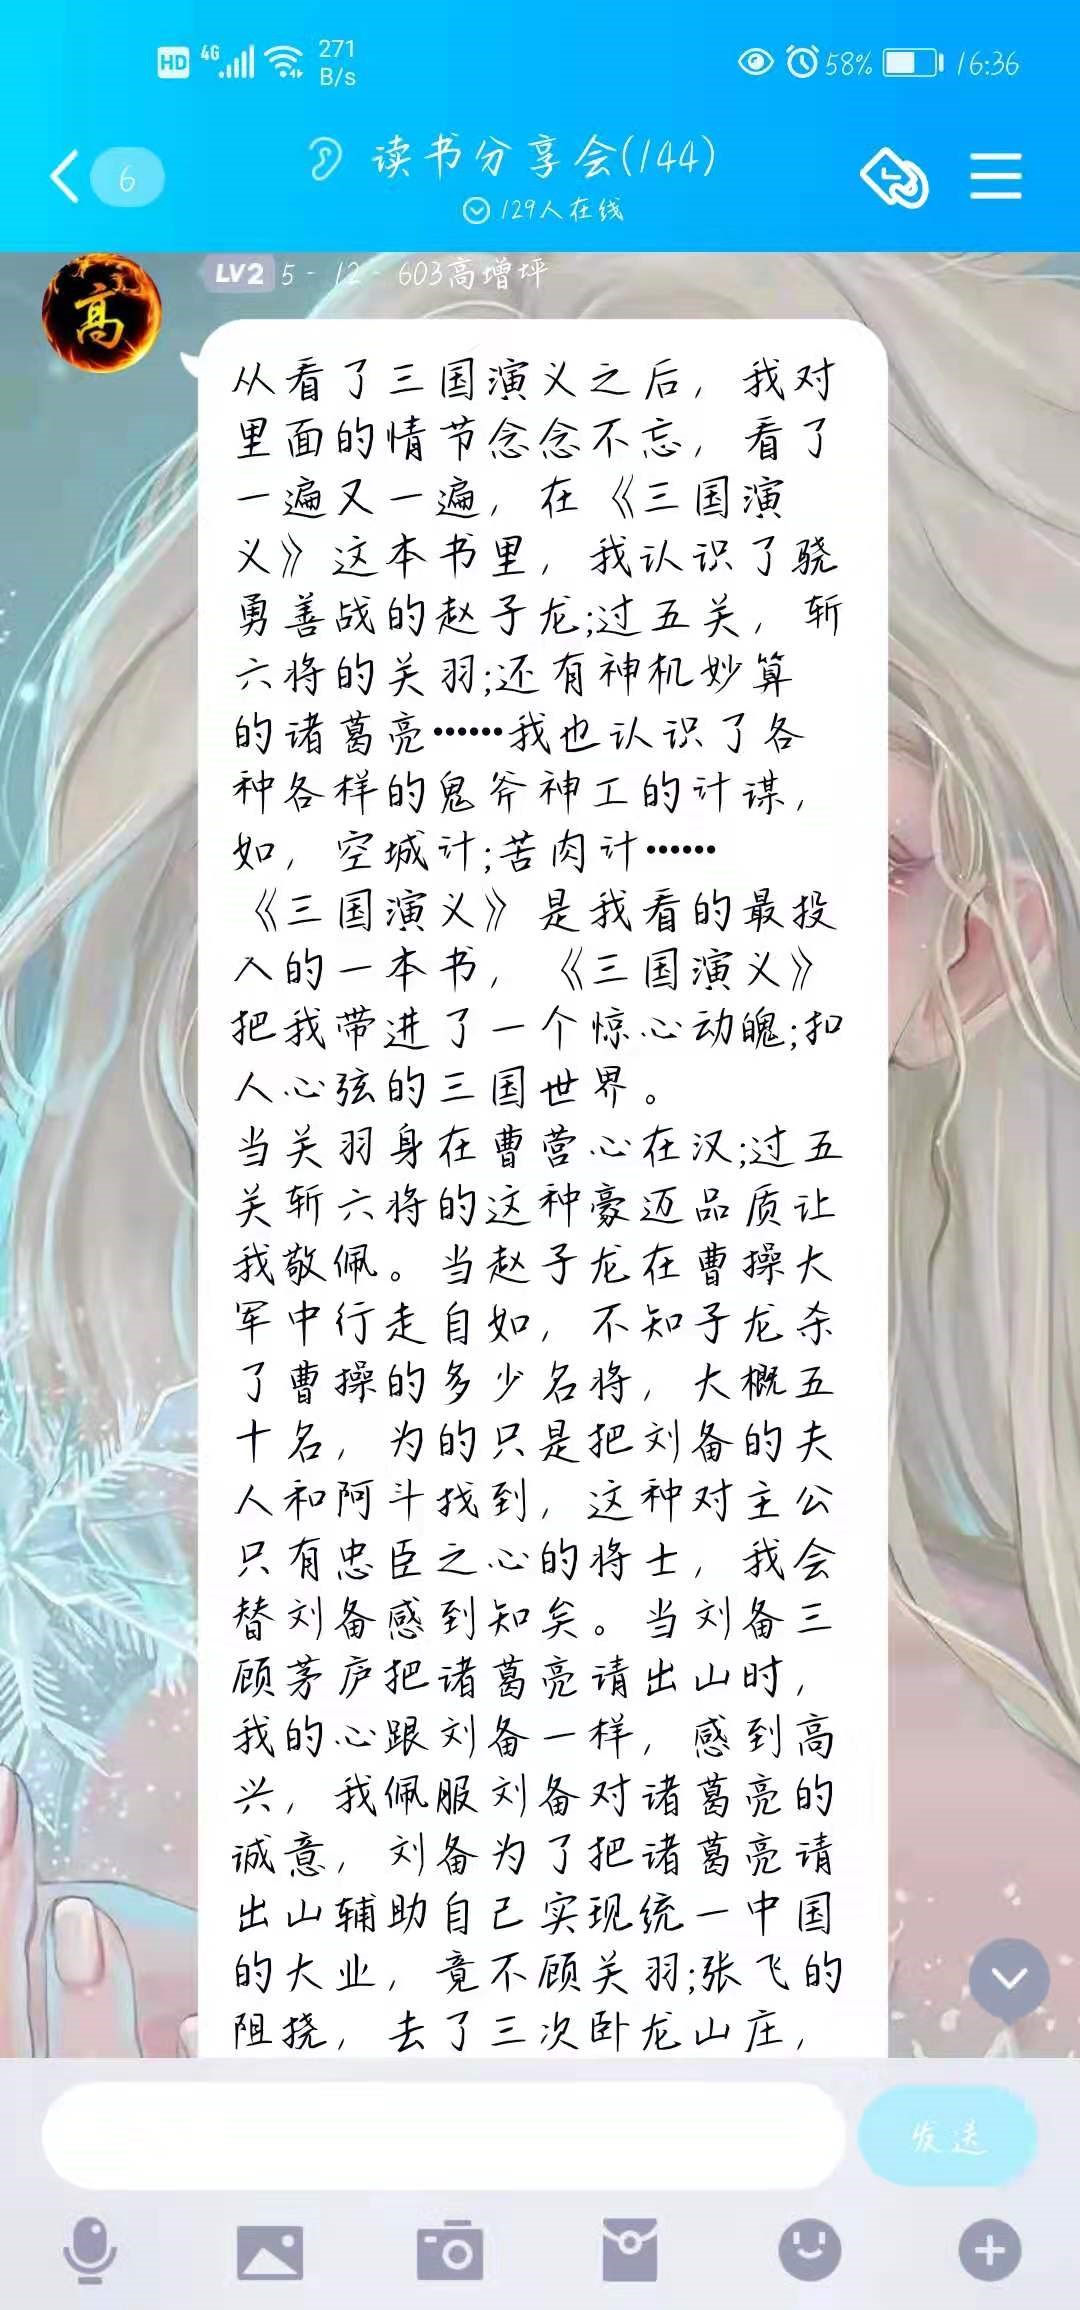 HD 4G 271 B/s 58% 16:36
6 读书分享会(144)
129人在线
高
LV2 5-12-603高增坪
从看了三国演义之后，我对
里面的情节念念不忘，看了
一遍又一遍，在《三国演
义》这本书里，我认识了骁
勇善战的赵子龙;过五关，斩
六将的关羽;还有神机妙算
的诸葛亮……我也认识了各
种各样的鬼斧神工的计谋，
如，空城计;苦肉计……
《三国演义》是我看的最投
入的一本书，《三国演义》
把我带进了一个惊心动魄;扣
人心弦的三国世界。
当关羽身在曹营心在汉;过五
关斩六将的这种豪迈品质让
我敬佩。当赵子龙在曹操大
军中行走自如，不知子龙杀
了曹操的多少名将，大概五
十名，为的只是把刘备的夫
人和阿斗找到，这种对主公
只有忠臣之心的将士，我会
替刘备感到知矣。当刘备三
顾茅庐把诸葛亮请出山时，
我的心跟刘备一样，感到高
兴，我佩服刘备对诸葛亮的
诚意，刘备为了把诸葛亮请
出山辅助自己实现统一中国
的大业，竟不顾关羽;张飞的
阻挠，去了三次卧龙山庄，
发送